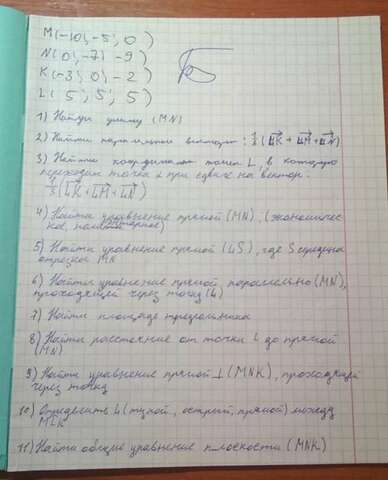 M(-10; -5; 0)
N(0; -7; -9)
K(-3; 0; -2)
L(5; 5; 5)
1) Найти длину (MN)
2) Найти вектор: (LK + LM + LN)
3) Найти координаты точки L, в которую
переходит точка L при сдвиге на вектор:
1/3 (LK + LM + LN)
4) Найти уравнение прямой (MN), (
ное,
5) Найти уравнение прямой (LS), где S середина
отрезка MK
6) Найти уравнение прямой, параллельно (MN),
проходящей через точку (L)
7) Найти площадь треугольника
8) Найти расстояние от точки L до прямой
(MN)
9) Найти уравнение прямой ⊥ (MNK), проходящей
через точку
10) Определить ∠ (тупой, острый, прямой) между
11) Найти общие уравнение плоскости (MNK)